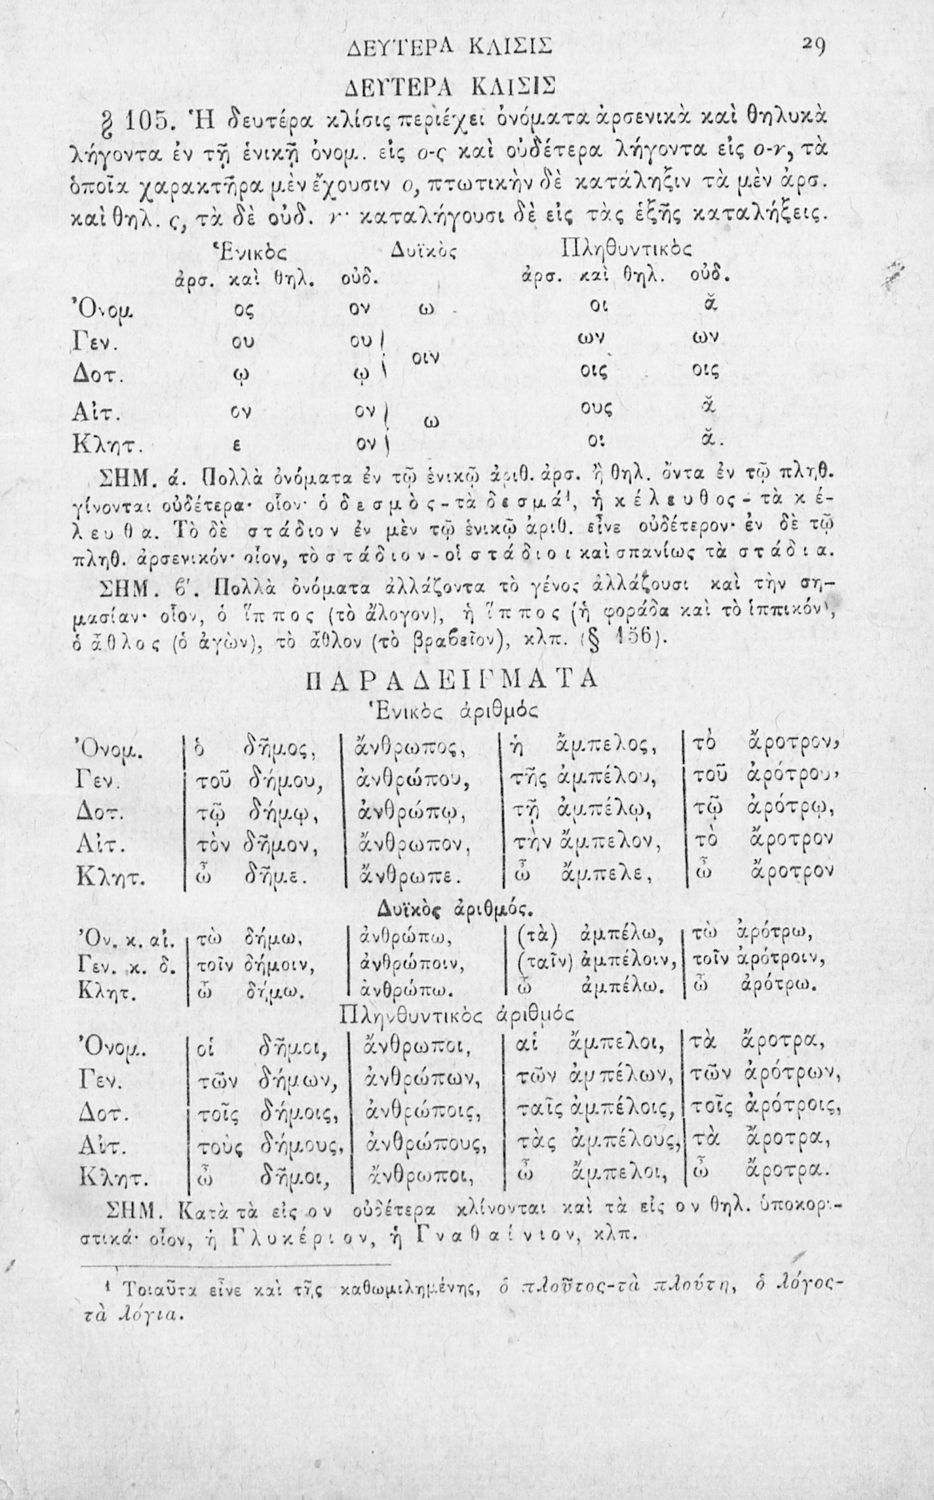 ΔΕΥΤΕΡΑ ΚΛΙΣΙΣ 29
ΔΕΥΤΕΡΑ ΚΛΙΣΙΣ
§ 105. Ἡ δευτέρα κλίσις περιέχει ὀνόματα ἀρσενικὰ καὶ θηλυκὰ
λήγοντα ἐν τῇ ἑνικῇ ὀνομ. εἰς ο-ς καὶ οὐδέτερα λήγοντα εἰς ο-ν, τὰ
ὁποῖα χαρακτῆρα μὲν ἔχουσιν ο, πτωτικὴν δὲ κατάληξιν τὰ μὲν ἀρσ.
καὶ θηλ. ς, τὰ δὲ οὐδ. ν· καταλήγουσι δὲ εἰς τὰς ἑξῆς καταλήξεις.
Ἑνικὸς Δυϊκὸς Πληθυντικὸς
ἀρσ. καὶ θηλ. οὐδ. ἀρσ. καὶ θηλ. οὐδ.
Ὀνομ. ος ον ω οι ᾰ
Γεν. ου ου οιν ων ων
Δοτ. ῳ ῳ οις οις
Αἰτ. ον ον ω ους ᾰ
Κλητ. ε ον οι ᾰ.
ΣΗΜ. ά. Πολλὰ ὀνόματα ἐν τῷ ἑνικῷ ἀριθ. ἀρσ. ἢ θηλ. ὄντα ἐν τῷ πληθ.
γίνονται οὐδέτερα· οἷον· ὁ δεσμὸς - τὰ δεσμά¹, ἡ κέλευθος - τὰ κέ-
λευθα. Τὸ δὲ στάδιον ἐν μὲν τῷ ἑνικῷ ἀριθ. εἶνε οὐδέτερον· ἐν δὲ τῷ
πληθ. ἀρσενικόν· οἷον, τὸ στάδιον - οἱ στάδιοι καὶ σπανίως τὰ στάδια.
ΣΗΜ. β΄. Πολλὰ ὀνόματα ἀλλάζοντα τὸ γένος ἀλλάζουσι καὶ τὴν ση-
μασίαν· οἷον, ὁ ἵππος (τὸ ἄλογον), ἡ ἵππος (ἡ φοράδα καὶ τὸ ἱππικόν),
ὁ ἆθλος (ὁ ἀγὼν), τὸ ἆθλον (τὸ βραβεῖον), κλπ. (§ 156).
ΠΑΡΑΔΕΙΓΜΑΤΑ
Ἑνικὸς ἀριθμός
Ὀνομ. ὁ δῆμος, ἄνθρωπος, ἡ ἄμπελος, τὸ ἄροτρον,
Γεν. τοῦ δήμου, ἀνθρώπου, τῆς ἀμπέλου, τοῦ ἀρότρου,
Δοτ. τῷ δήμῳ, ἀνθρώπῳ, τῇ ἀμπέλῳ, τῷ ἀρότρῳ,
Αἰτ. τὸν δῆμον, ἄνθρωπον, τὴν ἄμπελον, τὸ ἄροτρον
Κλητ. ὦ δῆμε. ἄνθρωπε. ὦ ἄμπελε, ὦ ἄροτρον
Δυϊκὸς ἀριθμός.
Ὀν. κ. αἰ. τὼ δήμω, ἀνθρώπω, (τὰ) ἀμπέλω, τὼ ἀρότρω,
Γεν. κ. δ. τοῖν δήμοιν, ἀνθρώποιν, (ταῖν) ἀμπέλοιν, τοῖν ἀρότροιν,
Κλητ. ὦ δήμω. ἀνθρώπω. ὦ ἀμπέλω. ὦ ἀρότρω.
Πληνθυντικὸς ἀριθμός
Ὀνομ. οἱ δῆμοι, ἄνθρωποι, αἱ ἄμπελοι, τὰ ἄροτρα,
Γεν. τῶν δήμων, ἀνθρώπων, τῶν ἀμπέλων, τῶν ἀρότρων,
Δοτ. τοῖς δήμοις, ἀνθρώποις, ταῖς ἀμπέλοις, τοῖς ἀρότροις,
Αἰτ. τοὺς δήμους, ἀνθρώπους, τὰς ἀμπέλους, τὰ ἄροτρα,
Κλητ. ὦ δῆμοι, ἄνθρωποι, ὦ ἄμπελοι, ὦ ἄροτρα.
ΣΗΜ. Κατὰ τὰ εἰς ον οὐδέτερα κλίνονται καὶ τὰ εἰς ον θηλ. ὑποκορι-
στικά· οἷον, ἡ Γλυκέριον, ἡ Γναθαίνιον, κλπ.
¹ Τοιαῦτα εἶνε καὶ τῆς καθωμιλημένης, ὁ πλοῦτος-τὰ πλούτη, ὁ λόγος-
τὰ λόγια.